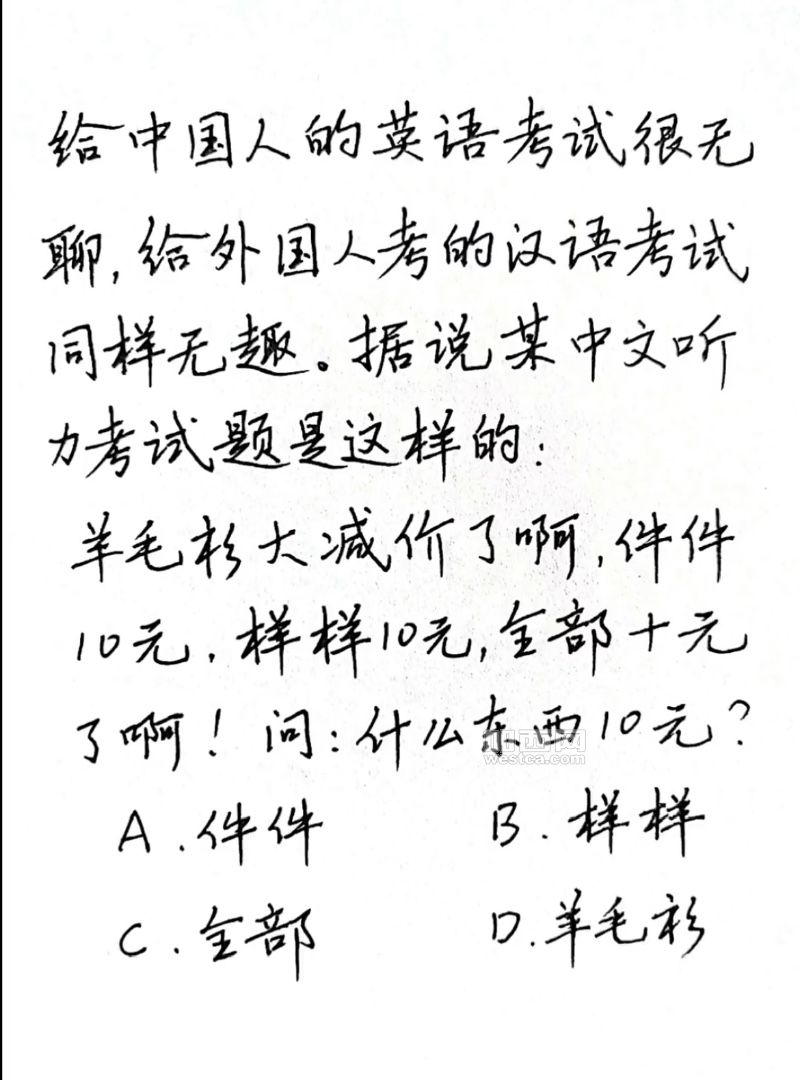 给中国人的英语考试很无
聊,给外国人考的汉语考试
同样无趣。据说某中文听
力考试题是这样的:
羊毛衫大减价了啊,件件
10元,样样10元,全部十元
了啊!问:什么东西10元?
A.件件 B.样样
C.全部 D.羊毛衫
westca.com